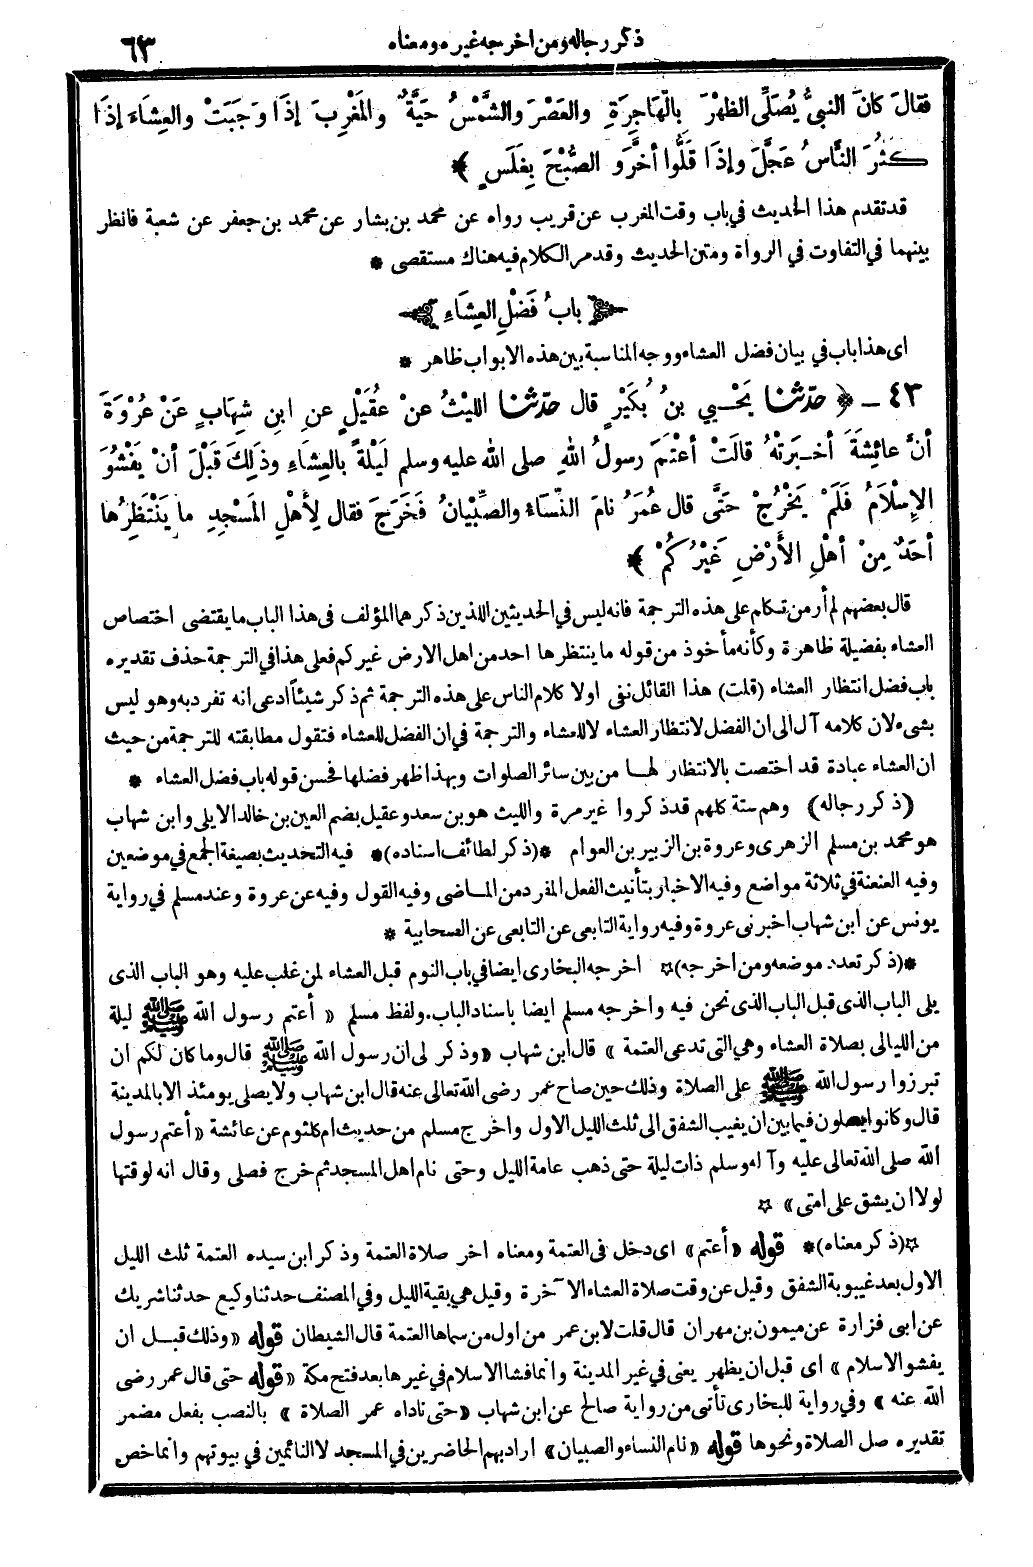 ذكر رجاله ومن اخرجه غيره ومعناه
٦٣
فقالَ كانَ النبىُّ يُصَلِّى الظهْرَ بِالْهَاجِرَةِ والعَصْرَ والشَّمْسُ حَيَّةٌ والمَغْرِبَ إذَا وَجَبَتْ والعِشَاءَ إذَا
كَثُرَ النَّاسُ عَجَّلَ وإذَا قَلُّوا أخَّرَ والصُّبْحَ بِغَلَسٍ ﴾
قد تقدم هذا الحديث فى باب وقت المغرب عن قريب رواه عن محمد بن بشار عن محمد بن جعفر عن شعبة فانظر
بينهما فى التفاوت فى الرواة ومتن الحديث وقد مر الكلام فيه هناك مستقصى *
﴿ بابُ فَضْلِ العِشَاءِ ﴾
اى هذا باب فى بيان فضل العشاء ووجه المناسبة بين هذه الابواب ظاهر *
٤٣ ـ ﴿ حدّثنا يَحْيي بنُ بُكَيْرٍ قال حدّثنا الليْثُ عنْ عُقَيْلٍ عنِ ابنِ شِهَابٍ عَنْ عُرْوَةَ
أنَّ عائِشةَ أخبَرَتْهُ قالَتْ أعْتَمَ رسولُ اللهِ صلى الله عليه وسلم لَيْلةً بالعِشاءِ وذلِكَ قَبْلَ أنْ يَفْشُوَ
الإِسْلَامُ فَلَمْ يَخْرُجْ حَتَّى قال عُمَرُ نامَ النِّسَاءُ والصِّبْيانُ فَخَرَجَ فقال لِأهْلِ المَسْجِدِ ما يَنْتَظِرُها
أحَدٌ مِنْ أهْلِ الأَرْضِ غَيْرُكُمْ ﴾
قال بعضهم لم أر من تكلم على هذه الترجمة فانه ليس فى الحديثين اللذين ذكرهما المؤلف فى هذا الباب ما يقتضى اختصاص
العشاء بفضيلة ظاهرة وكأنه مأخوذ من قوله ما ينتظرها احد من اهل الارض غيركم فعلى هذا فى الترجمة حذف تقديره
باب فضل انتظار العشاء (قلت) هذا القائل نفى اولا كلام الناس على هذه الترجمة ثم ذكر شيئاً ادعى انه تفرد به وهو ليس
بشىء لان كلامه آل الى ان الفضل لانتظار العشاء لا للعشاء والترجمة فى ان الفضل للعشاء فتقول مطابقته للترجمة من حيث
ان العشاء عبادة قد اختصت بالانتظار لها من بين سائر الصلوات وبهذا ظهر فضلها فحسن قوله باب فضل العشاء *
(ذكر رجاله) وهم ستة كلهم قد ذكروا غير مرة والليث هو بن سعد وعقيل بضم العين بن خالد الايلى وابن شهاب
هو محمد بن مسلم الزهرى وعروة بن الزبير بن العوام *(ذكر لطائف اسناده)* فيه التحديث بصيغة الجمع فى موضعين
وفيه العنعنة فى ثلاثة مواضع وفيه الاخبار بتأنيث الفعل المفرد من الماضى وفيه القول وفيه عن عروة وعند مسلم فى رواية
يونس عن ابن شهاب اخبرنى عروة وفيه رواية التابعى عن التابعى عن الصحابية *
*(ذكر تعدد موضعه ومن اخرجه)* اخرجه البخارى ايضا فى باب النوم قبل العشاء لمن غلب عليه وهو الباب الذى
يلى الباب الذى قبل الباب الذى نحن فيه واخرجه مسلم ايضا باسناد الباب. ولفظ مسلم « أعتم رسول الله ﷺ ليلة
من الليالى بصلاة العشاء وهى التى تدعى العتمة » قال ابن شهاب «وذكر لى ان رسول الله ﷺ قال وما كان لكم ان
تبرزوا رسول الله ﷺ على الصلاة وذلك حين صاح عمر رضى الله تعالى عنه قال ابن شهاب ولا يصلى يومئذ الا بالمدينة
قال وكانوا يصلون فيما بين ان يغيب الشفق الى ثلث الليل الاول واخرج مسلم من حديث ام كلثوم عن عائشة «أعتم رسول
الله صلى الله تعالى عليه وآله وسلم ذات ليلة حتى ذهب عامة الليل وحتى نام اهل المسجد ثم خرج فصلى وقال انه لوقتها
لولا ان يشق على امتى» *
*(ذكر معناه)* قوله «أعتم» اى دخل فى العتمة ومعناه اخر صلاة العتمة وذكر ابن سيده العتمة ثلث الليل
الاول بعد غيبوبة الشفق وقيل عن وقت صلاة العشاء الآخرة وقيل هى بقية الليل وفى المصنف حدثنا وكيع حدثنا شريك
عن ابى فزارة عن ميمون بن مهران قال قلت لابن عمر من اول من سماها العتمة قال الشيطان قوله «وذلك قبل ان
يفشو الاسلام » اى قبل ان يظهر يعنى فى غير المدينة وانما فشا الاسلام فى غيرها بعد فتح مكة «قوله حتى قال عمر رضى
الله عنه » وفى رواية للبخارى تأتى من رواية صالح عن ابن شهاب «حتى ناداه عمر الصلاة » بالنصب بفعل مضمر
تقديره صل الصلاة ونحوها قوله «نام النساء والصبيان» اراد بهم الحاضرين فى المسجد لا النائمين فى بيوتهم وانما خص